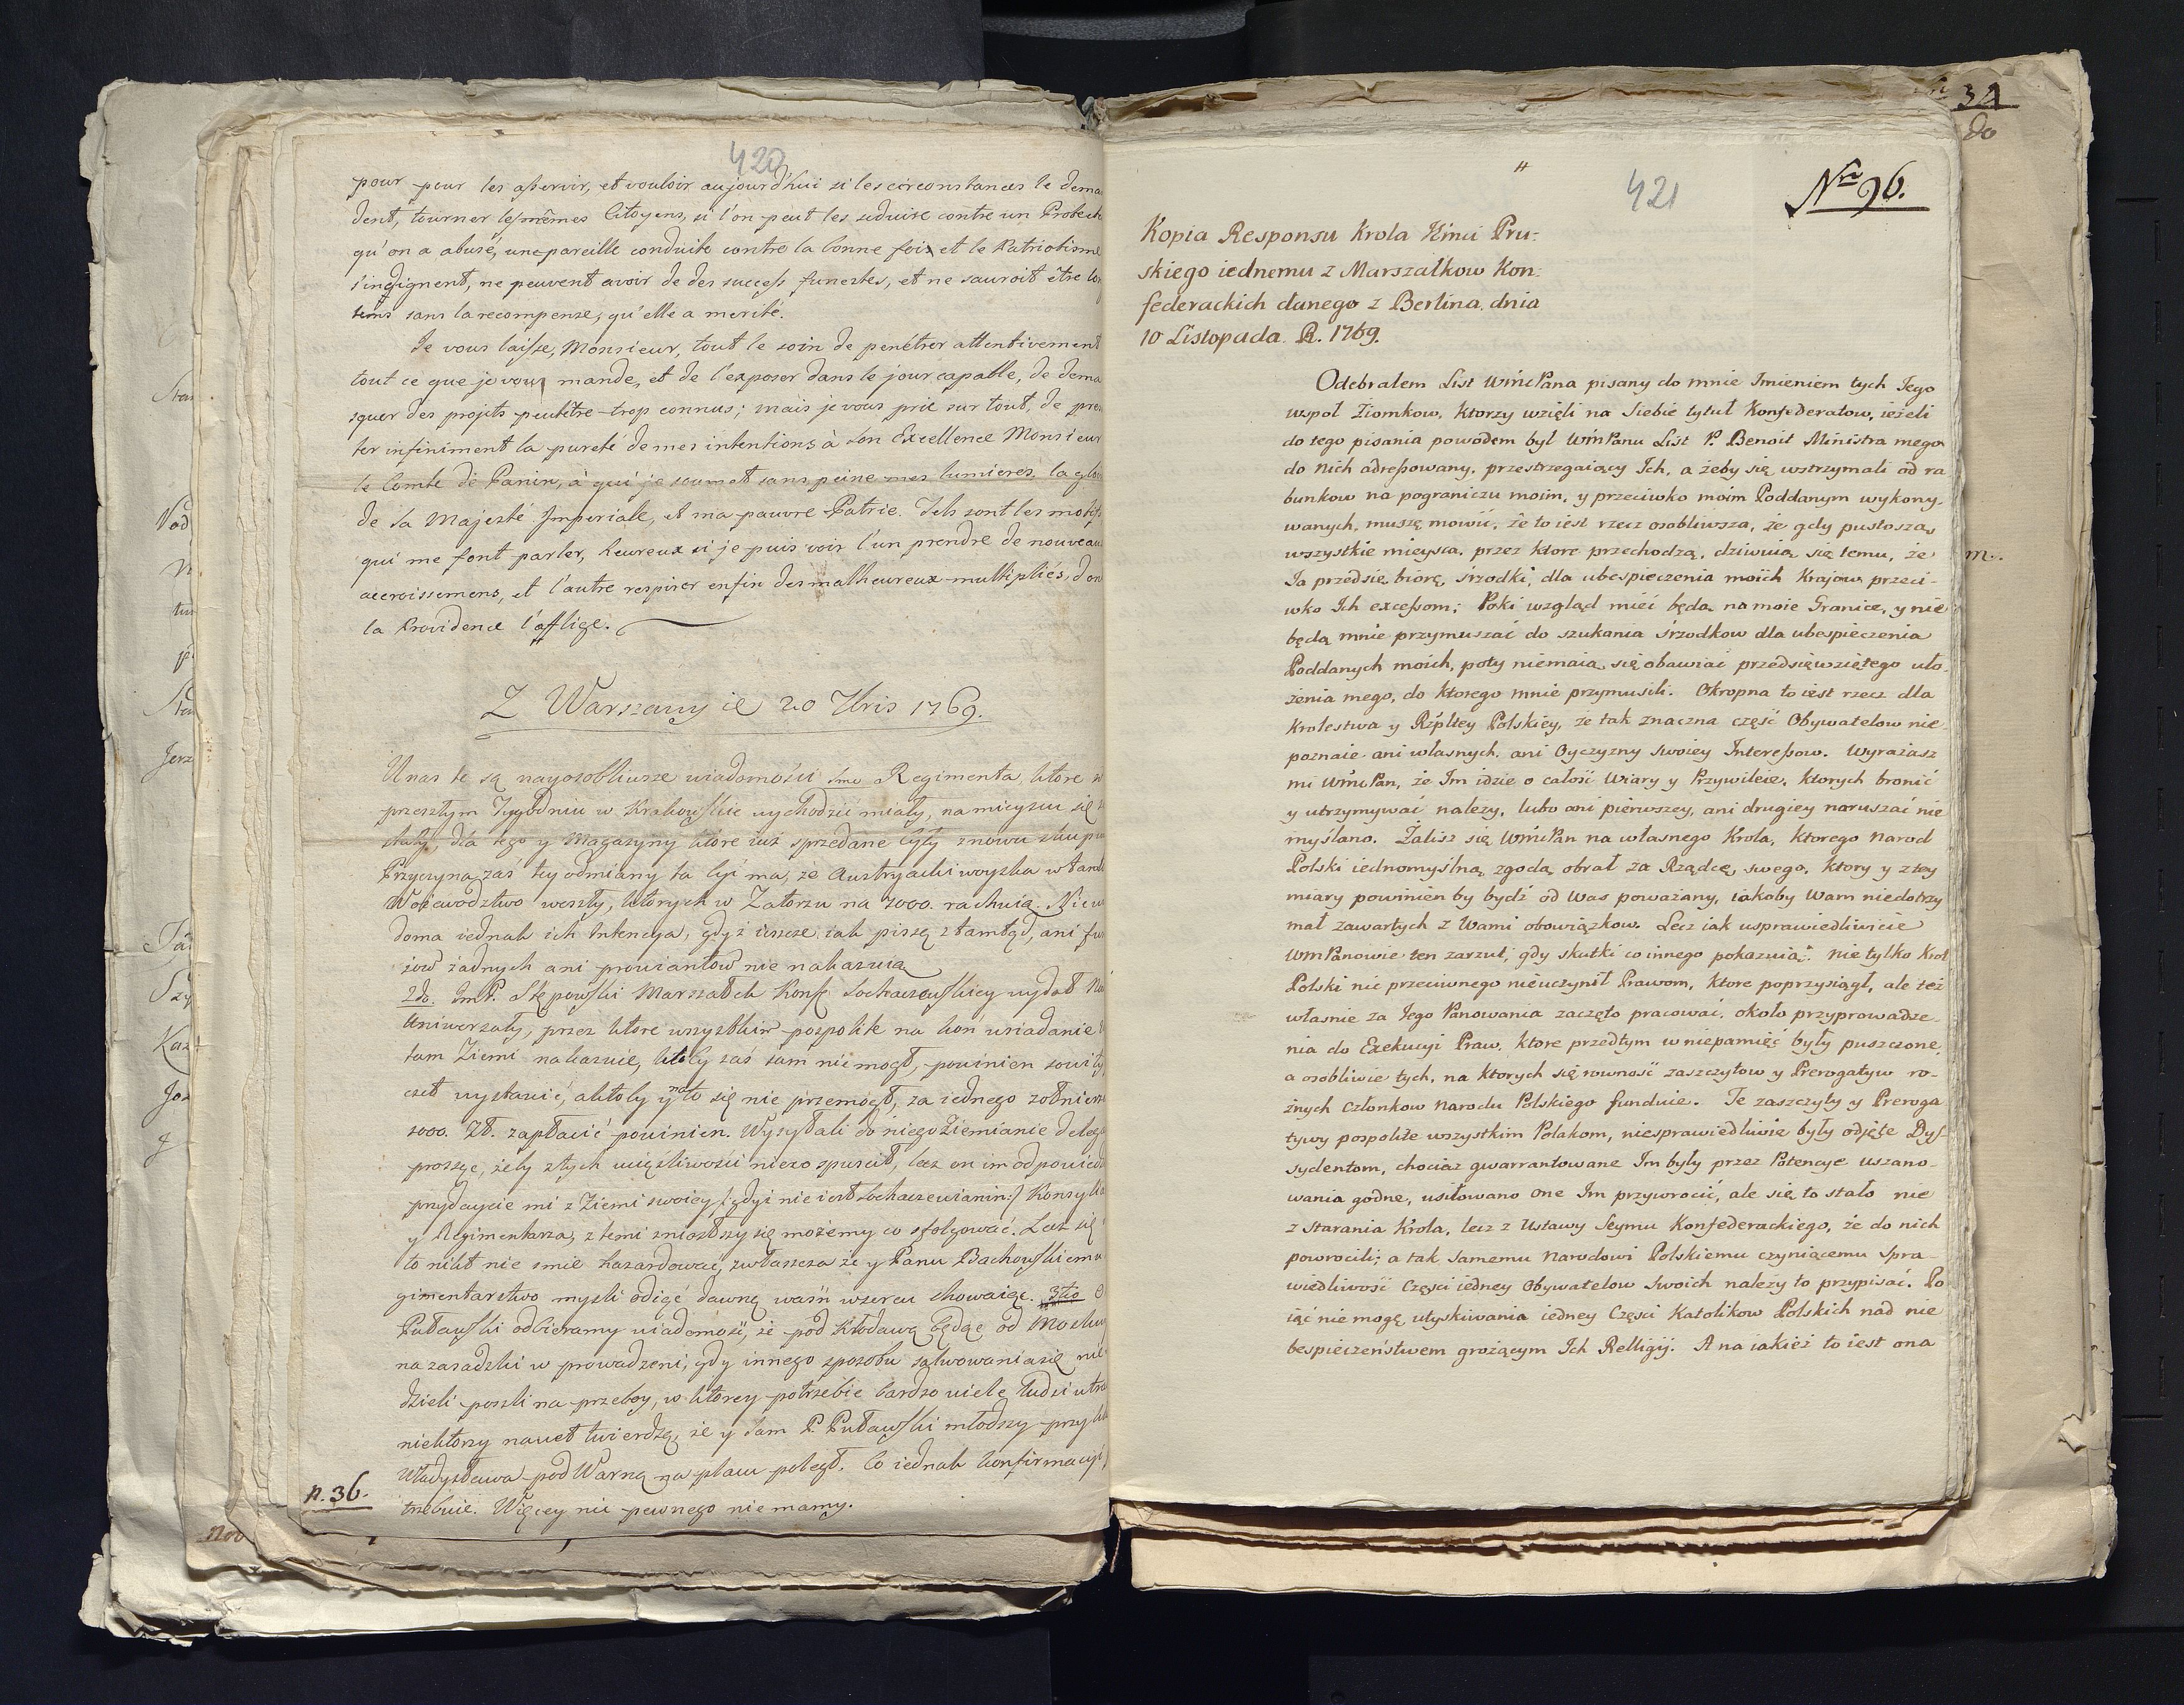 420
pour pour les asservir, et vouloir aujourd'hui si les circonstances le dema
dent, tourner les mêmes Citoyens, si l'on peut les seduire contre un Protect
qu'on a abusé, une pareille conduite contre la bonne foix et le Patriotisme
s'indignent, ne peuvent avoir de des succeſs funestes, et ne sauroit être lo
tems sans la recompense, qu'elle a merité.
Je vous laisse, Monsieur, tout le soin de penétrer attentivement
tout ce que je vous mande, et de l'exposer dans le jour capable, de dema
squer des projets peutêtre trop connus; mais je vous prie sur tout, de pres
ter infiniment la pureté de mes intentions à Son Excellence Monsieur
le Comte de Panin, à qui je soumet sans peine mes lumieres. la glo
de Sa Majesté Imperiale, et ma pauvre Patrie. Tels sont les motifs
qui me font parler, heureux si je puis voir l'un prendre de nouveau
accroissemens, et l'autre respirer enfin des malheureux multipliés, don
la Providence l'afflige.
Z Warszawy ie 20 Xbris 1769.
U nas te są nayosobliwsze wiadomości 1mo Regimenta, ktore w
przeszłym Tygodniu w Krakowskie wychodzić miały, na mieyscu się
tały, dla tego y Magazyny ktore iuż sprzedane były znowu skupu
Przyczyna zas tey odmiany ta być ma, że Austryacki woyska w
Woiewodztwo weszły, ktorych w Zatorzu na 7000. rachuią. Niew
doma iednak ich Intencya, gdyż ieszcze iak piszą ztamtąd, ani fur
żow żadnych ani prowiantow nie nakazuią
2do. ImP. Stępowski Marszałek Konf. Sochaczewskiey wydał
Uniwersały, przez ktore wszystkim pospolite na koń wsiadanie
tam Ziemi nakazuie, ktoby zaś sam nie mogł, powinien sowity
czet wystawić, aktoby y na to się nie przemogł, za iednego zołnierz
1000. Zł. zapłacić powinien. Wysyłali do niego Ziemianie delega
proszęc, żeby z tych uciążliwości nieco spuscił, lecz on im odpowied
przydaycie mi z Ziemi swoiey /:gdyż nie iest Sochaczewianin:/ Konsylia
y Regimentarza, z temi zniosłszy się możemy co sfolgować. Lecz się
to nikt nie smie hazardować, zwłaszcza że y Panu Bachowskiemu
gimentarstwo mysli odiąć dawną waśń w sercu chowaiąc. 3tio O
Puławski odbieramy wiadomość, że pod Kłodawą będąc od Moskwy
na zasadzki w prowadzeni, gdy innego sposobu salwowania się nie
dzieli poszli na przeboy, w ktorey potrzebie bardzo wiele ludzi utra
niektorzy nawet twierdzą, że y Sam P. Puławski młodszy przykła
Władysława pod Warną na placu poległ. Co iednak konfirmacyi
trzebuie. Więcey nic pewnego nie mamy.
n. 36.
421
Nro 96.
Kopia Responsu Krola JMci Pru:
skiego iednemu z Marszałkow Kon:
federackich danego z Berlina. dnia
10 Listopada R. 1769.
Odebrałem List WmćPana pisany do mnie Imieniem tych Jego
wspoł Ziomkow, ktorzy wzięli na Siebie tytuł Konfederatow, ieżeli
do tego pisania powodem był WmPanu List P. Benoit Ministra mego
do Nich adreſsowany, przestrzegaiący Ich, a żeby się wstrzymali od ra
bunkow na pograniczu moim, y przeciwko moim Poddanym wykony-
wanych, muszę mowić, że to iest rzecz osobliwsza, że gdy pustoszą,
wszystkie mieysca, przez ktore przechodzą, dziwuią się temu, że
Ja przedsię biorę, srzodki, dla ubespieczenia moiich Krajow przeci-
wko Ich exceſsom; Poki wzgląd mieć będą na moie Granice, y nie
będą mnie przymuszać do szukania srzodkow dla ubespieczenia
Poddanych moich, poty niemaią się obawiać przedsięwziętego uło-
żenia mego, do ktorego mnie przymusili. Okropna to iest rzecz dla
Krolestwa y Rzpltey Polskiey, ze tak znaczna część Obywatelow nie
poznaie ani własnych, ani Oyczyzny Swoiey Intereſsow. Wyrażasz
mi WmćPan, że Im idzie o całość Wiary y Przywileie, ktorych bronić
y utrzymywać należy, lubo ani pierwszey, ani drugiey naruszać nie
myślano. Żalisz się WmćPan na własnego Krola, ktorego Narod
Polski iednomyślną zgodą obrał za Rządcę swego, ktory y z tey
miary powinien by bydź od Was poważany, iakoby Wam niedotrzy
mał zawartych z Wami obowiązkow. Lecz iak usprawiedliwicie
WmPanowie ten zarzut, gdy skutki co innego pokazuią: nie tylko Krol
Polski nic przeciwnego nieuczynił Prawom, ktore poprzysiągł, ale też
własnie za Jego Panowania zaczęto pracować, około przyprowadze-
nia do Exekucyi Praw, ktore przedtym w niepamięć były puszczone,
a osobliwie tych, na ktorych się rowność zaszczytow y Prerogatyw ro-
żnych Członkow Narodu Polskiego funduie. Te zaszczyty y Preroga
tywy pospolite wszystkim Polakom, niesprawiedliwie były odjęte Dyſ-
sydentom, chociaż gwarrantowane Im były przez Potencye uszano-
wania godne, usiłowano one Im przywrocić, ale się to stało nie
z Starania Krola, lecz z Ustawy Seymu Konfederackiego, że do nich
powrocili; a tak Samemu Narodowi Polskiemu czyniącemu Spra-
wiedliwość Części iedney Obywatelow Swoich należy to przypisać. Po
iąć nie mogę utyskiwania iedney Części Katolikow Polskich nad nie
bespieczeństwem grożącym Ich Relligij. A na iakież to iest ona